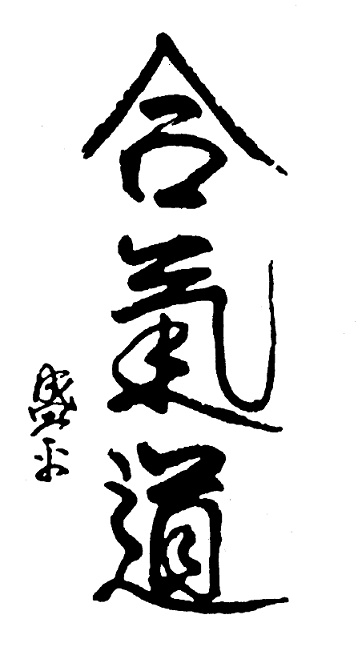 合氣道
盛平